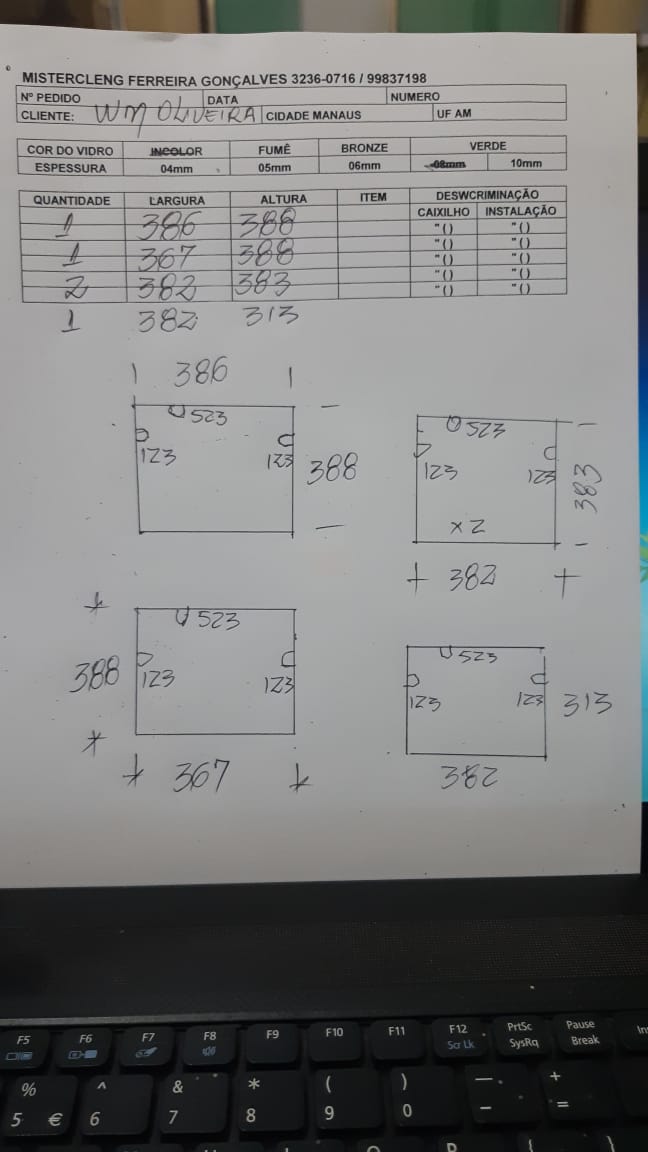 MISTERCLENG FERREIRA GONÇALVES 3236-0716 / 99837198
Nº PEDIDO DATA NUMERO
CLIENTE: WM OLIVEIRA CIDADE MANAUS UF AM
COR DO VIDRO INCOLOR FUMÊ BRONZE VERDE
ESPESSURA 04mm 05mm 06mm 08mm 10mm
QUANTIDADE LARGURA ALTURA ITEM DESWCRIMINAÇÃO
CAIXILHO INSTALAÇÃO
1 386 388 "( ) "( )
1 367 388 "( ) "( )
2 382 383 "( ) "( )
"( ) "( )
"( ) "( )
1 382 313
386
523
123 123
388
523
123 123
383
x 2
382
523
123 123
388
367
523
123 123
313
382
F5 F6 F7 F8 F9 F10 F11 F12 PrtSc Pause Ins
Scr Lk SysRq Break
% ^ & * ( ) — +
5 € 6 7 8 9 0 - =